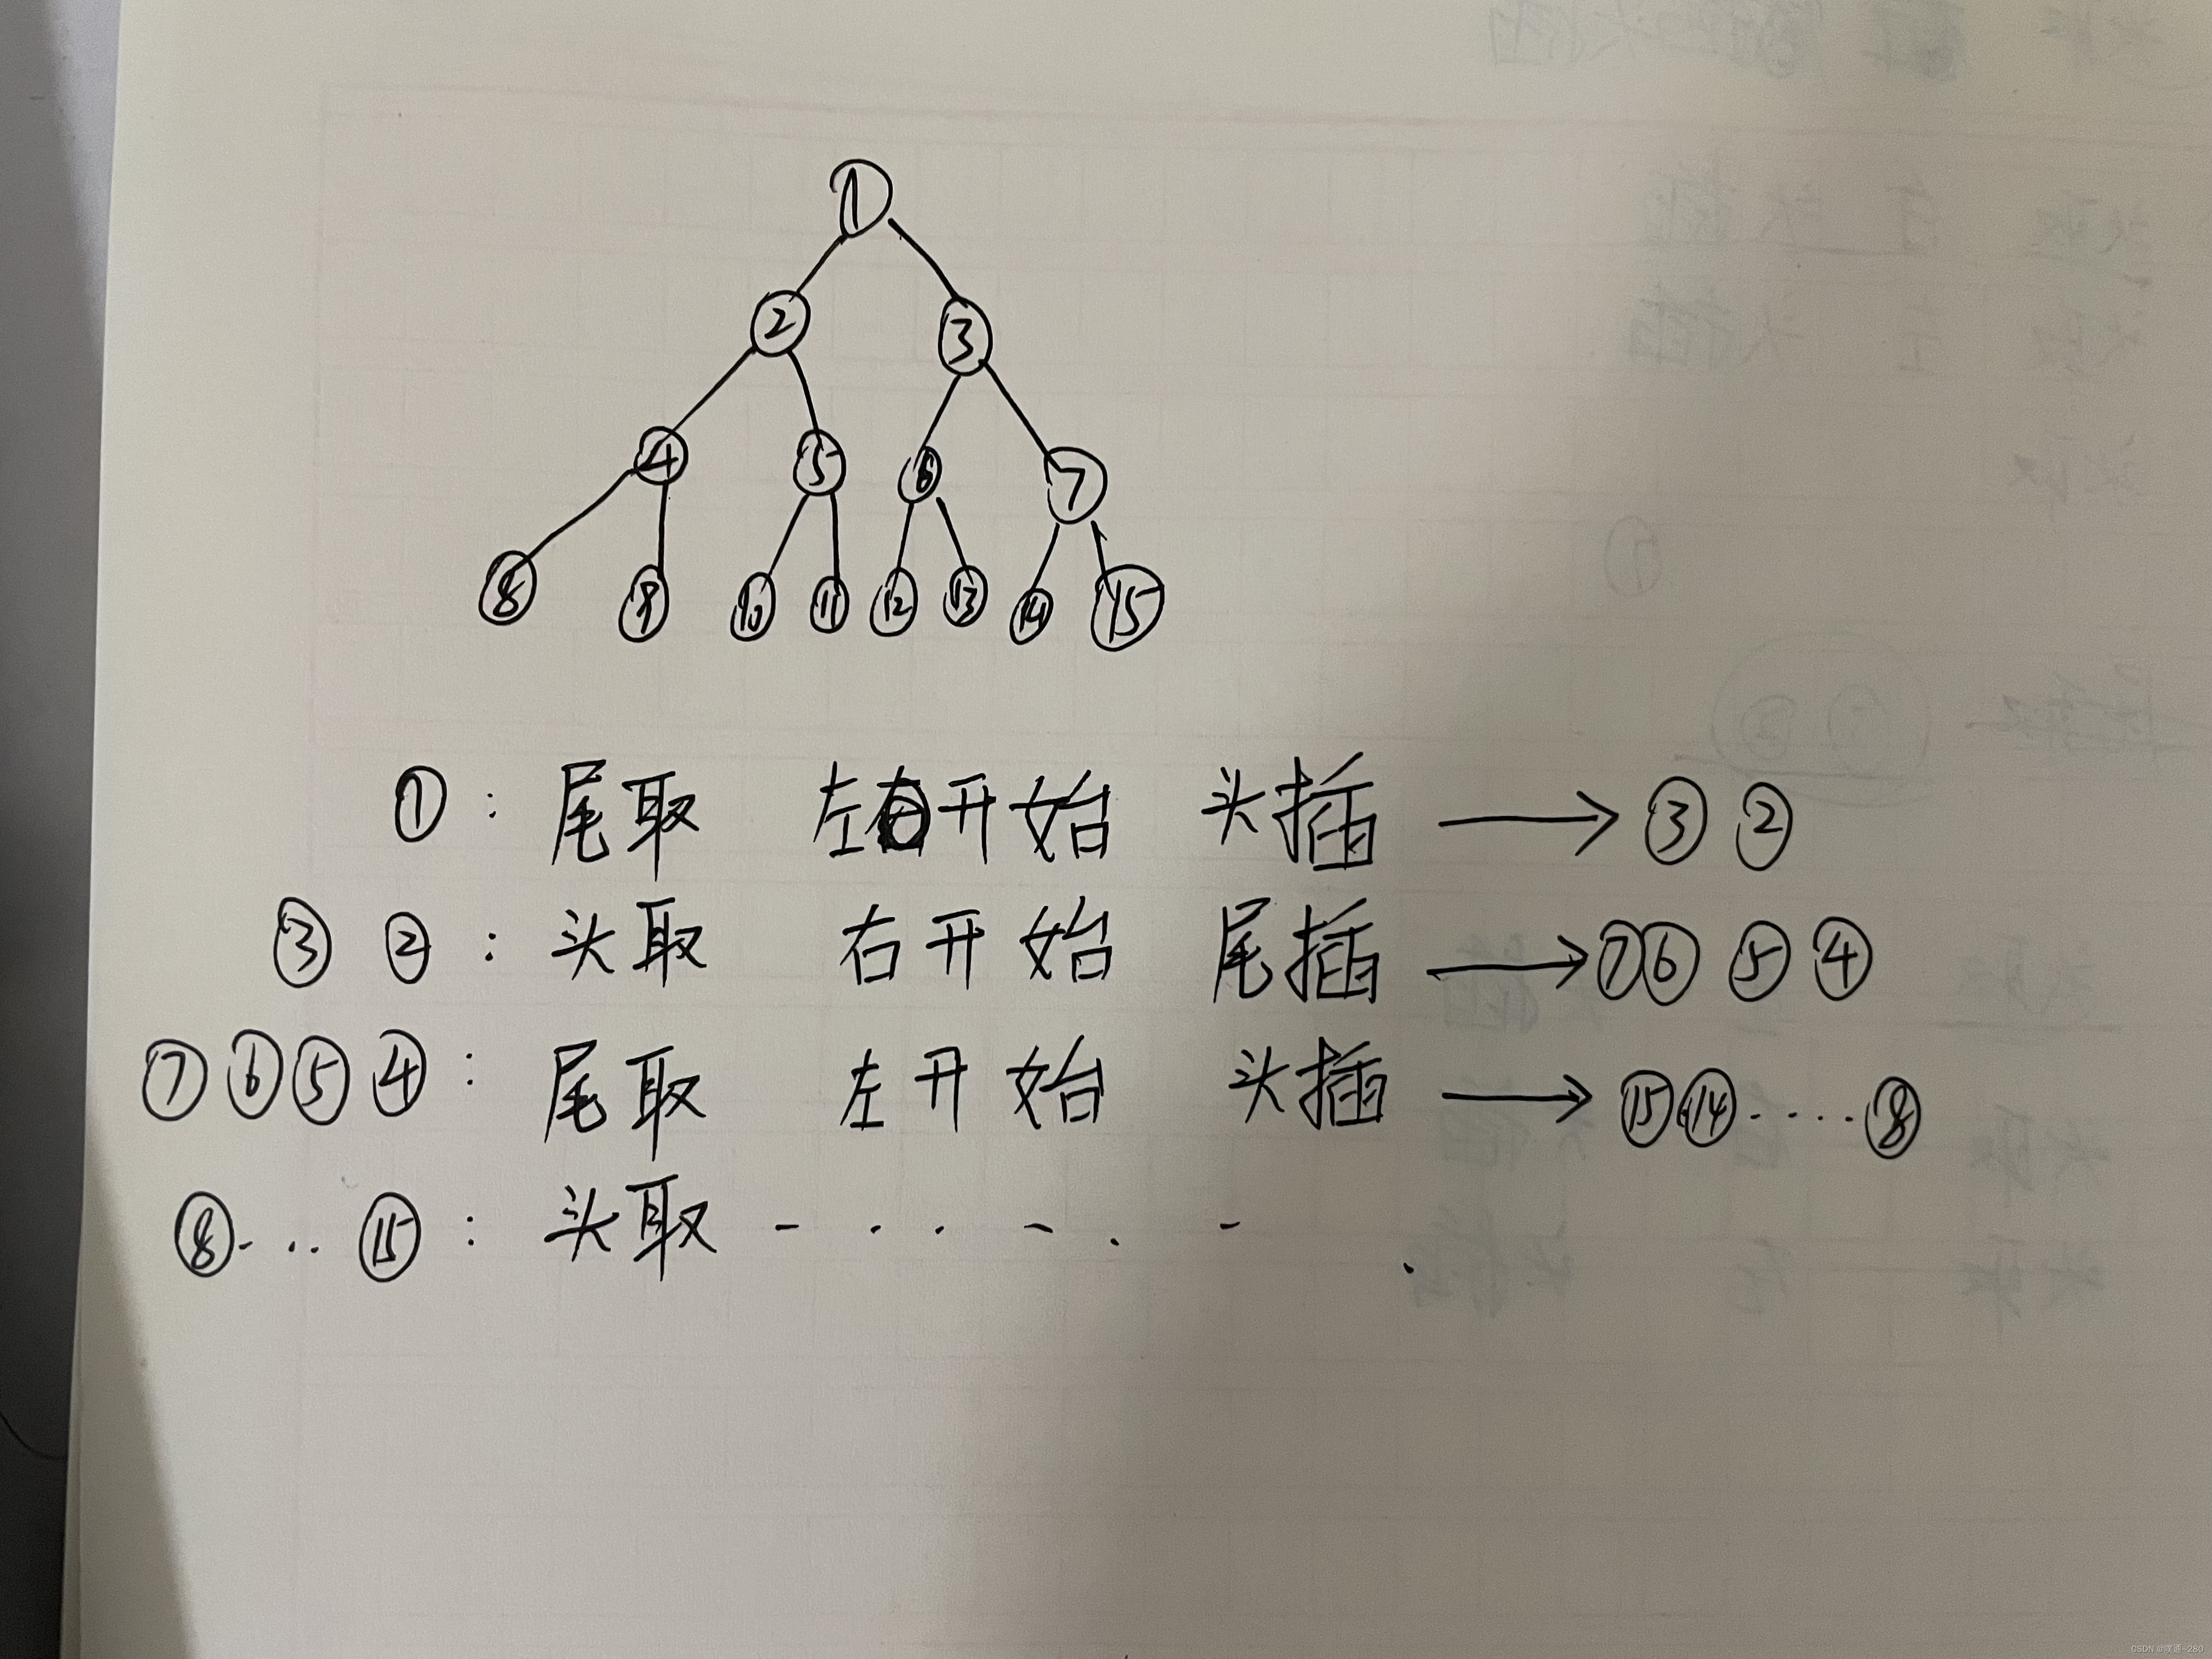 ①
② ③
④ ⑤ ⑥ ⑦
⑧ ⑨ ⑩ ⑪ ⑫ ⑬ ⑭ ⑮
① : 尾取 左开始 头插 → ③ ②
③ ② : 头取 右开始 尾插 → ⑦ ⑥ ⑤ ④
⑦ ⑥ ⑤ ④ : 尾取 左开始 头插 → ⑮ ⑭ ..... ⑧
⑧ ... ⑮ : 头取 - . . - . - .
CSDN @璞通~280